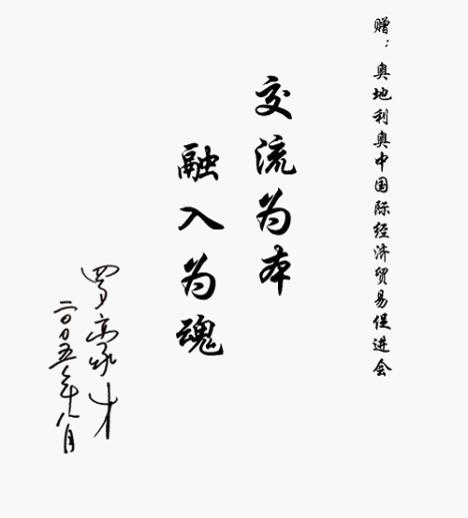 赠：奥地利奥中国际经济贸易促进会
交流为本
融入为魂
罗豪才
二〇〇五年八月